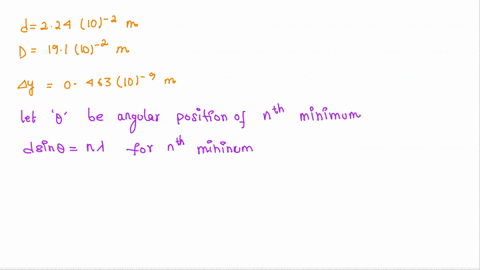 d = 2.24 (10)^-2 m
D = 19.1 (10)^-2 m
Δy = 0.463 (10)^-9 m
let 'θ' be angular position of n^th minimum
dsinθ = nλ for n^th mininum